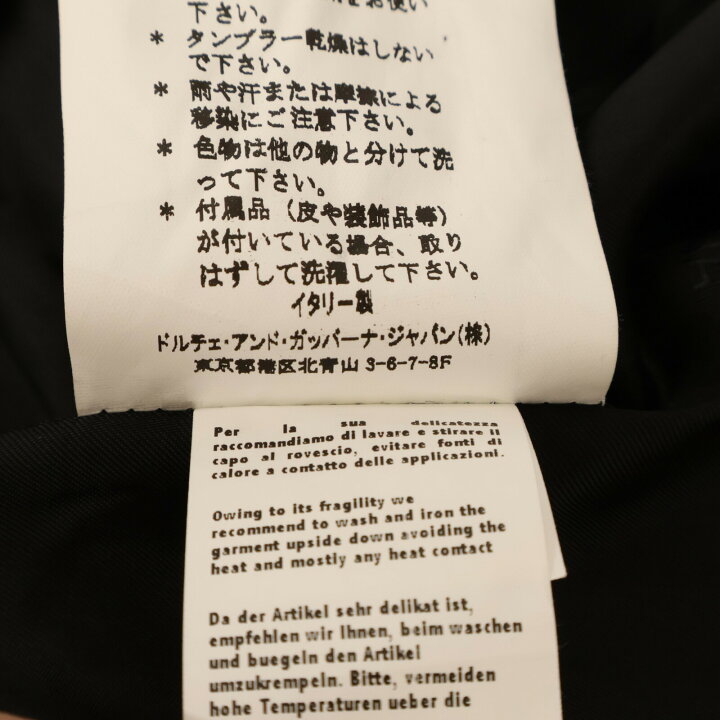 をお使い
下さい。
* タンブラー乾燥はしない
で下さい。
* 雨や汗または摩擦による
移染にご注意下さい。
* 色物は他の物と分けて洗
って下さい。
* 付属品（皮や装飾品等）
が付いている場合、取り
はずして洗濯して下さい。
イタリー製
ドルチェ・アンド・ガッバーナ・ジャパン(株)
東京都港区北青山 3-6-7-8F
Per la sua delicatezza
raccomandiamo di lavare e stirare il
capo al rovescio, evitare fonti di
calore a contatto delle applicazioni.
Owing to its fragility we
recommend to wash and iron the
garment upside down avoiding the
heat and mostly any heat contact
Da der Artikel sehr delikat ist,
empfehlen wir Ihnen, beim waschen
und buegeln den Artikel
umzukrempeln. Bitte, vermeiden
hohe Temperaturen ueber die